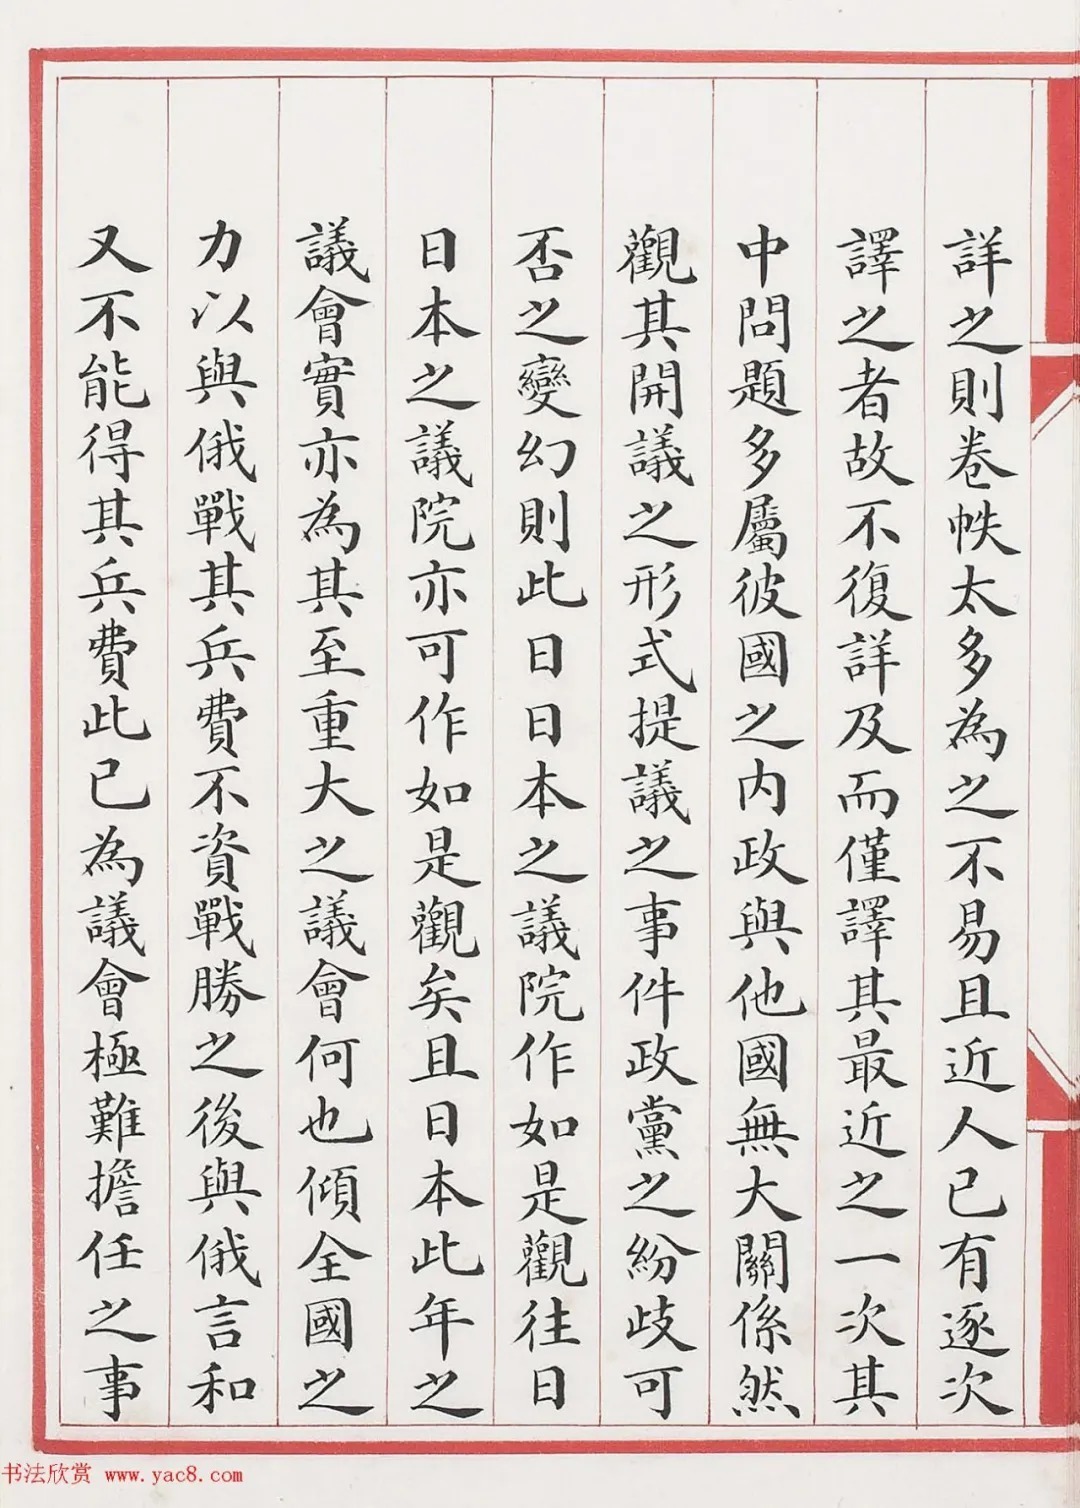 詳之則卷帙太多為之不易且近人已有逐次
譯之者故不復詳及而僅譯其最近之一次其
中問題多屬彼國之內政與他國無大關係然
觀其開議之形式提議之事件政黨之紛歧可
否之變幻則此日日本之議院作如是觀往日
日本之議院亦可作如是觀矣且日本此年之
議會實亦為其至重大之議會何也傾全國之
力以與俄戰其兵費不資戰勝之後與俄言和
又不能得其兵費此已為議會極難擔任之事
书法欣赏 www.yac8.com